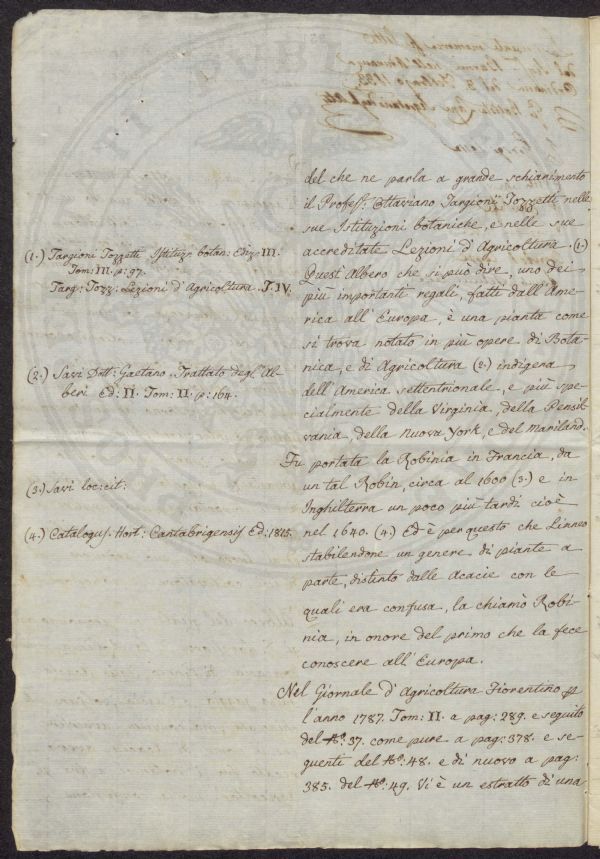 del che ne parla a grande schiarimento
il Profess: Ottaviano Targioni Tozzetti nelle
sue Istituzioni botaniche, e nelle sue
accreditate Lezioni d'Agricoltura. (1.)
Quest'Albero che si può dire, uno dei
più importanti regali, fatti dall'Ame-
rica all'Europa, è una pianta come
si trova notato in più opere di Bota-
nica, e di Agricoltura (2.) indigena
dell'America settentrionale, e più spe-
cialmente della Virginia, della Pensil-
vania, della Nuova York, e del Mariland.
Fu portata la Robinia in Francia, da
un tal Robin, circa al 1600 (3.) e in
Inghilterra un poco più tardi cioè
nel 1640. (4.) Ed è per questo che Linneo
stabilendone un genere di piante a
parte, distinto dalle Acacie con le
quali era confusa, la chiamò Robi-
nia, in onore del primo che la fece
conoscere all'Europa.
Nel Giornale d'Agricoltura Fiorentino p
l'anno 1787. Tom: II. a pag: 289. e seguito
del No: 37. come pure a pag: 378. e se-
guenti del No: 48. e di nuovo a pag:
385. del No: 49. Vi è un estratto di una
(1.) Targioni Tozzetti Istituz: botan: Ediz: III.
Tom: III. p: 97.
Targ: Tozz: Lezioni d'Agricoltura. T. IV.
(2.) Savi Dott: Gaetano. Trattato degl'Al-
beri Ed: II. Tom: II. p: 164.
(3.) Savi loc: cit:
(4.) Catalogus. Hort: Cantabrigensis Ed: 1815.